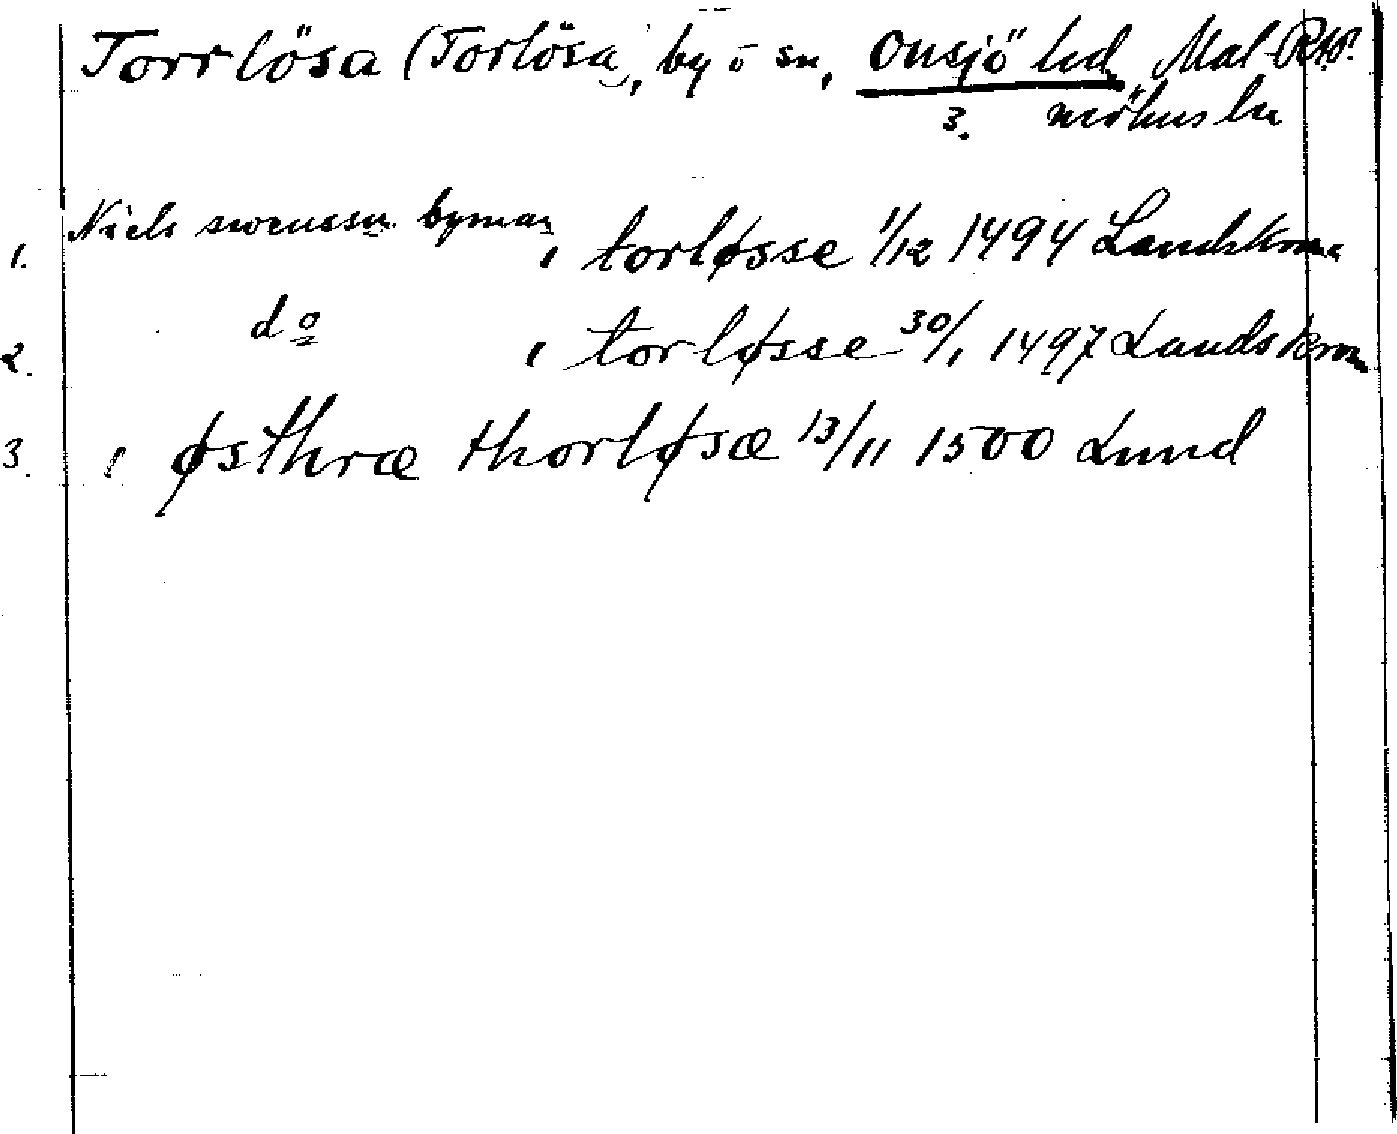 Torrlösa (Torlösa), by o sn, Onsjö hd, Mal-
möhus län
3.
1. Niels swenssn byman, i torløsse 1/12 1494 Landskrona
2. do, i torløsse 30/1 1497 Landskrona
3. i østhræ thorløsæ 13/11 1500 Lund